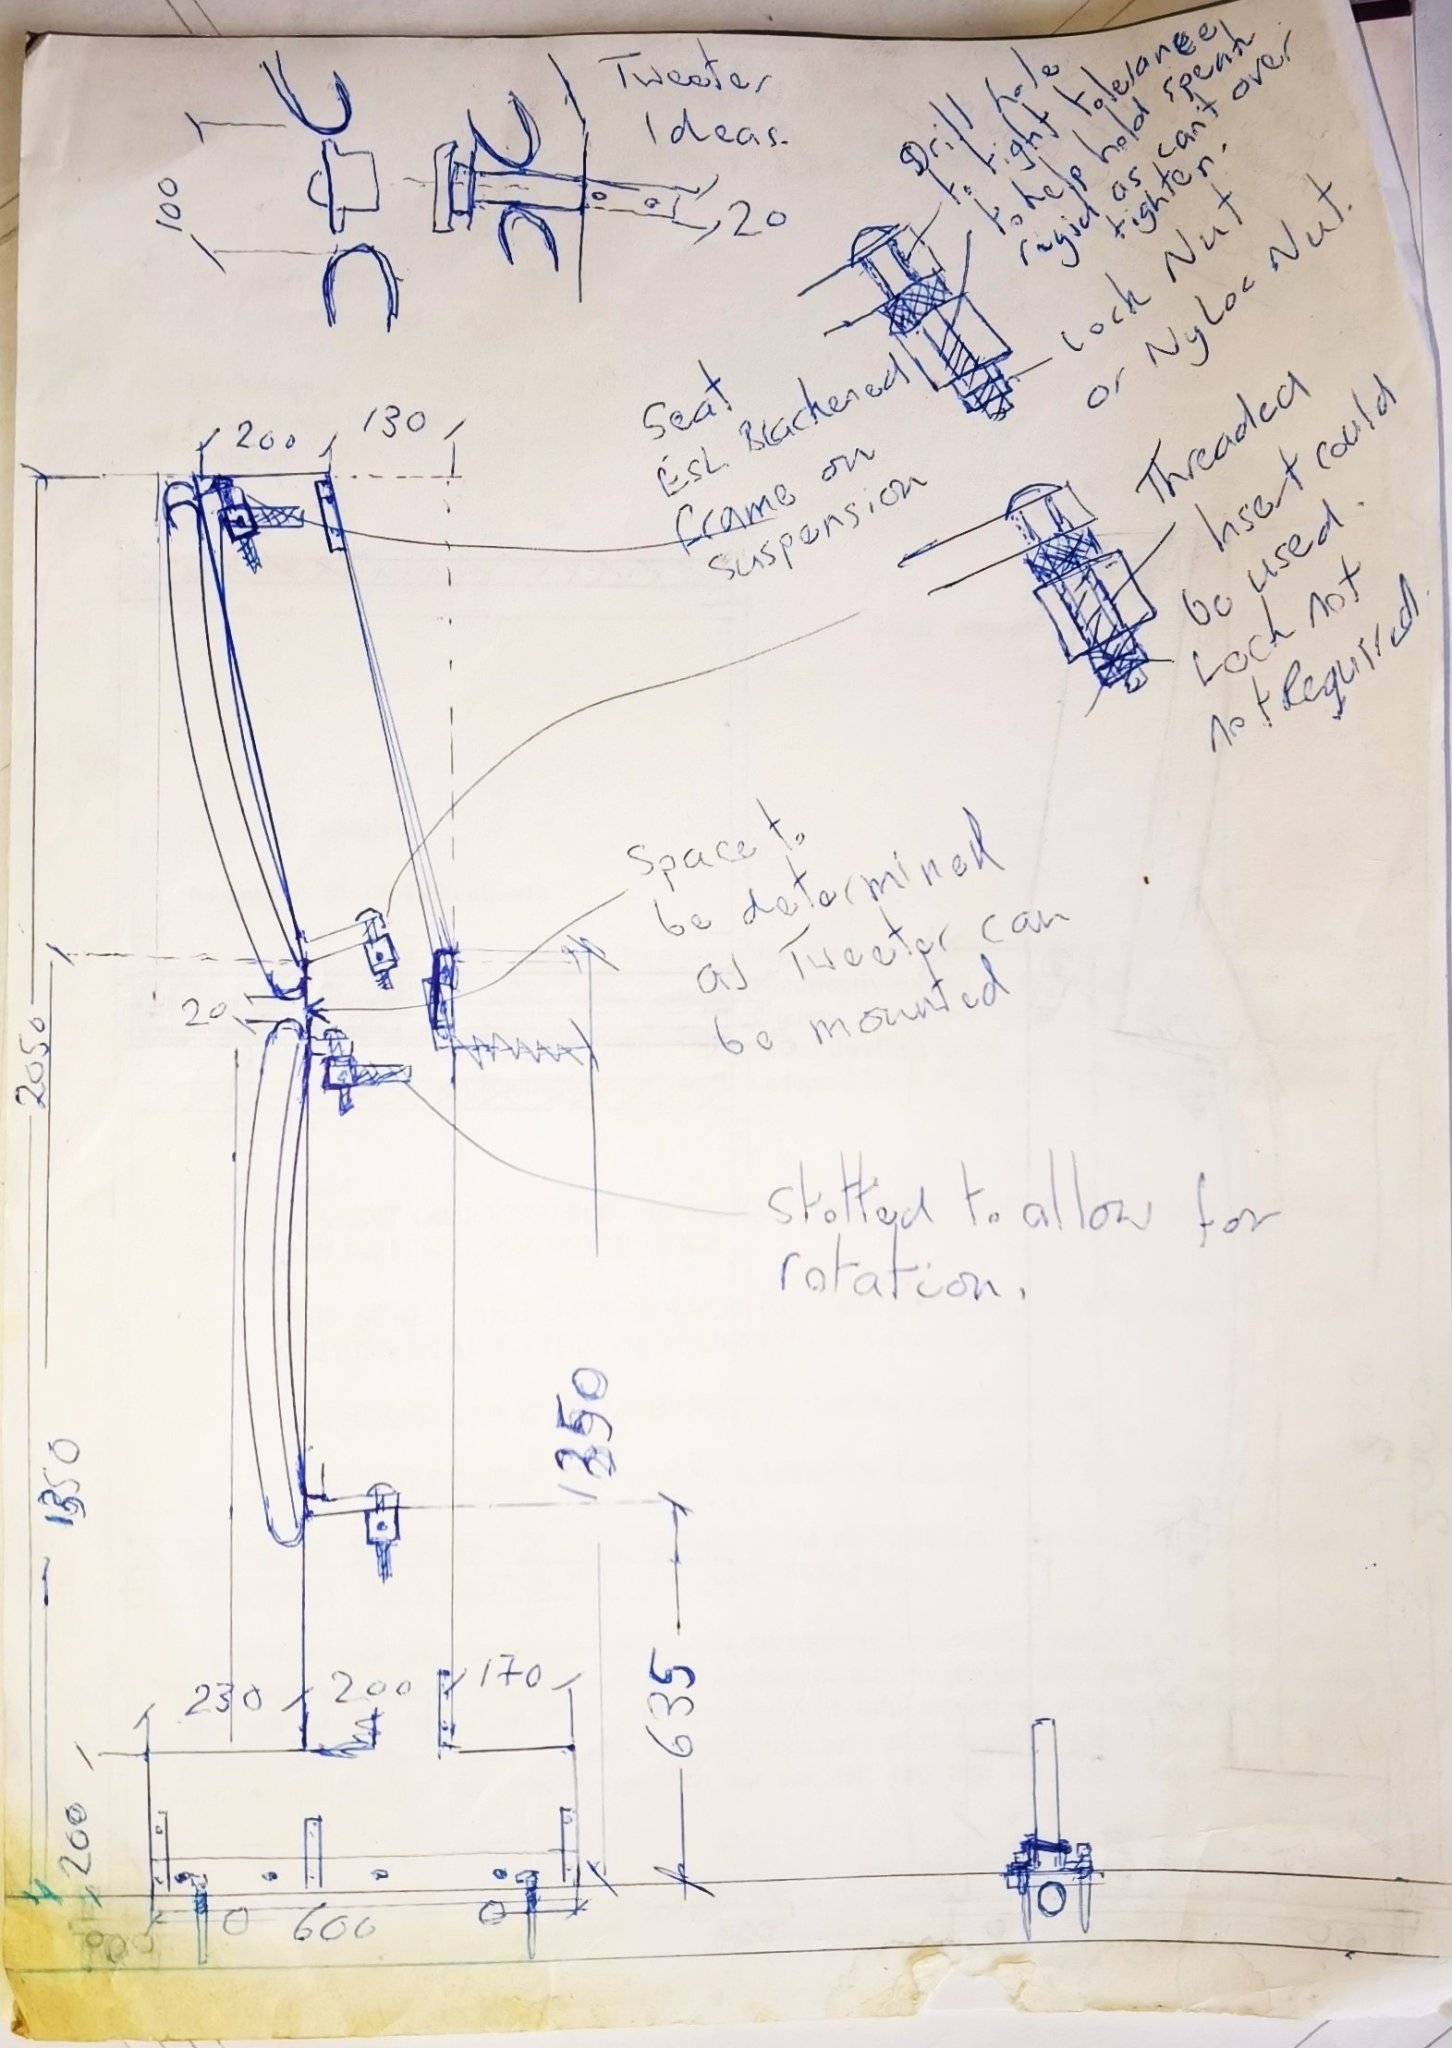 Tweeter
Ideas.
100
20
Drill hole
to tight tolerance
to help hold
rigid as can't over
tighten.
Lock Nut
or Nyloc Nut.
Seat
ESL Blackened
frame on
suspension
Threaded
Insert could
be used.
Lock not
not Required.
200
130
Space to
be determined
as Tweeter can
be mounted
20
2050
Slotted to allow for
rotation.
1350
1350
635
230
200
170
200
600